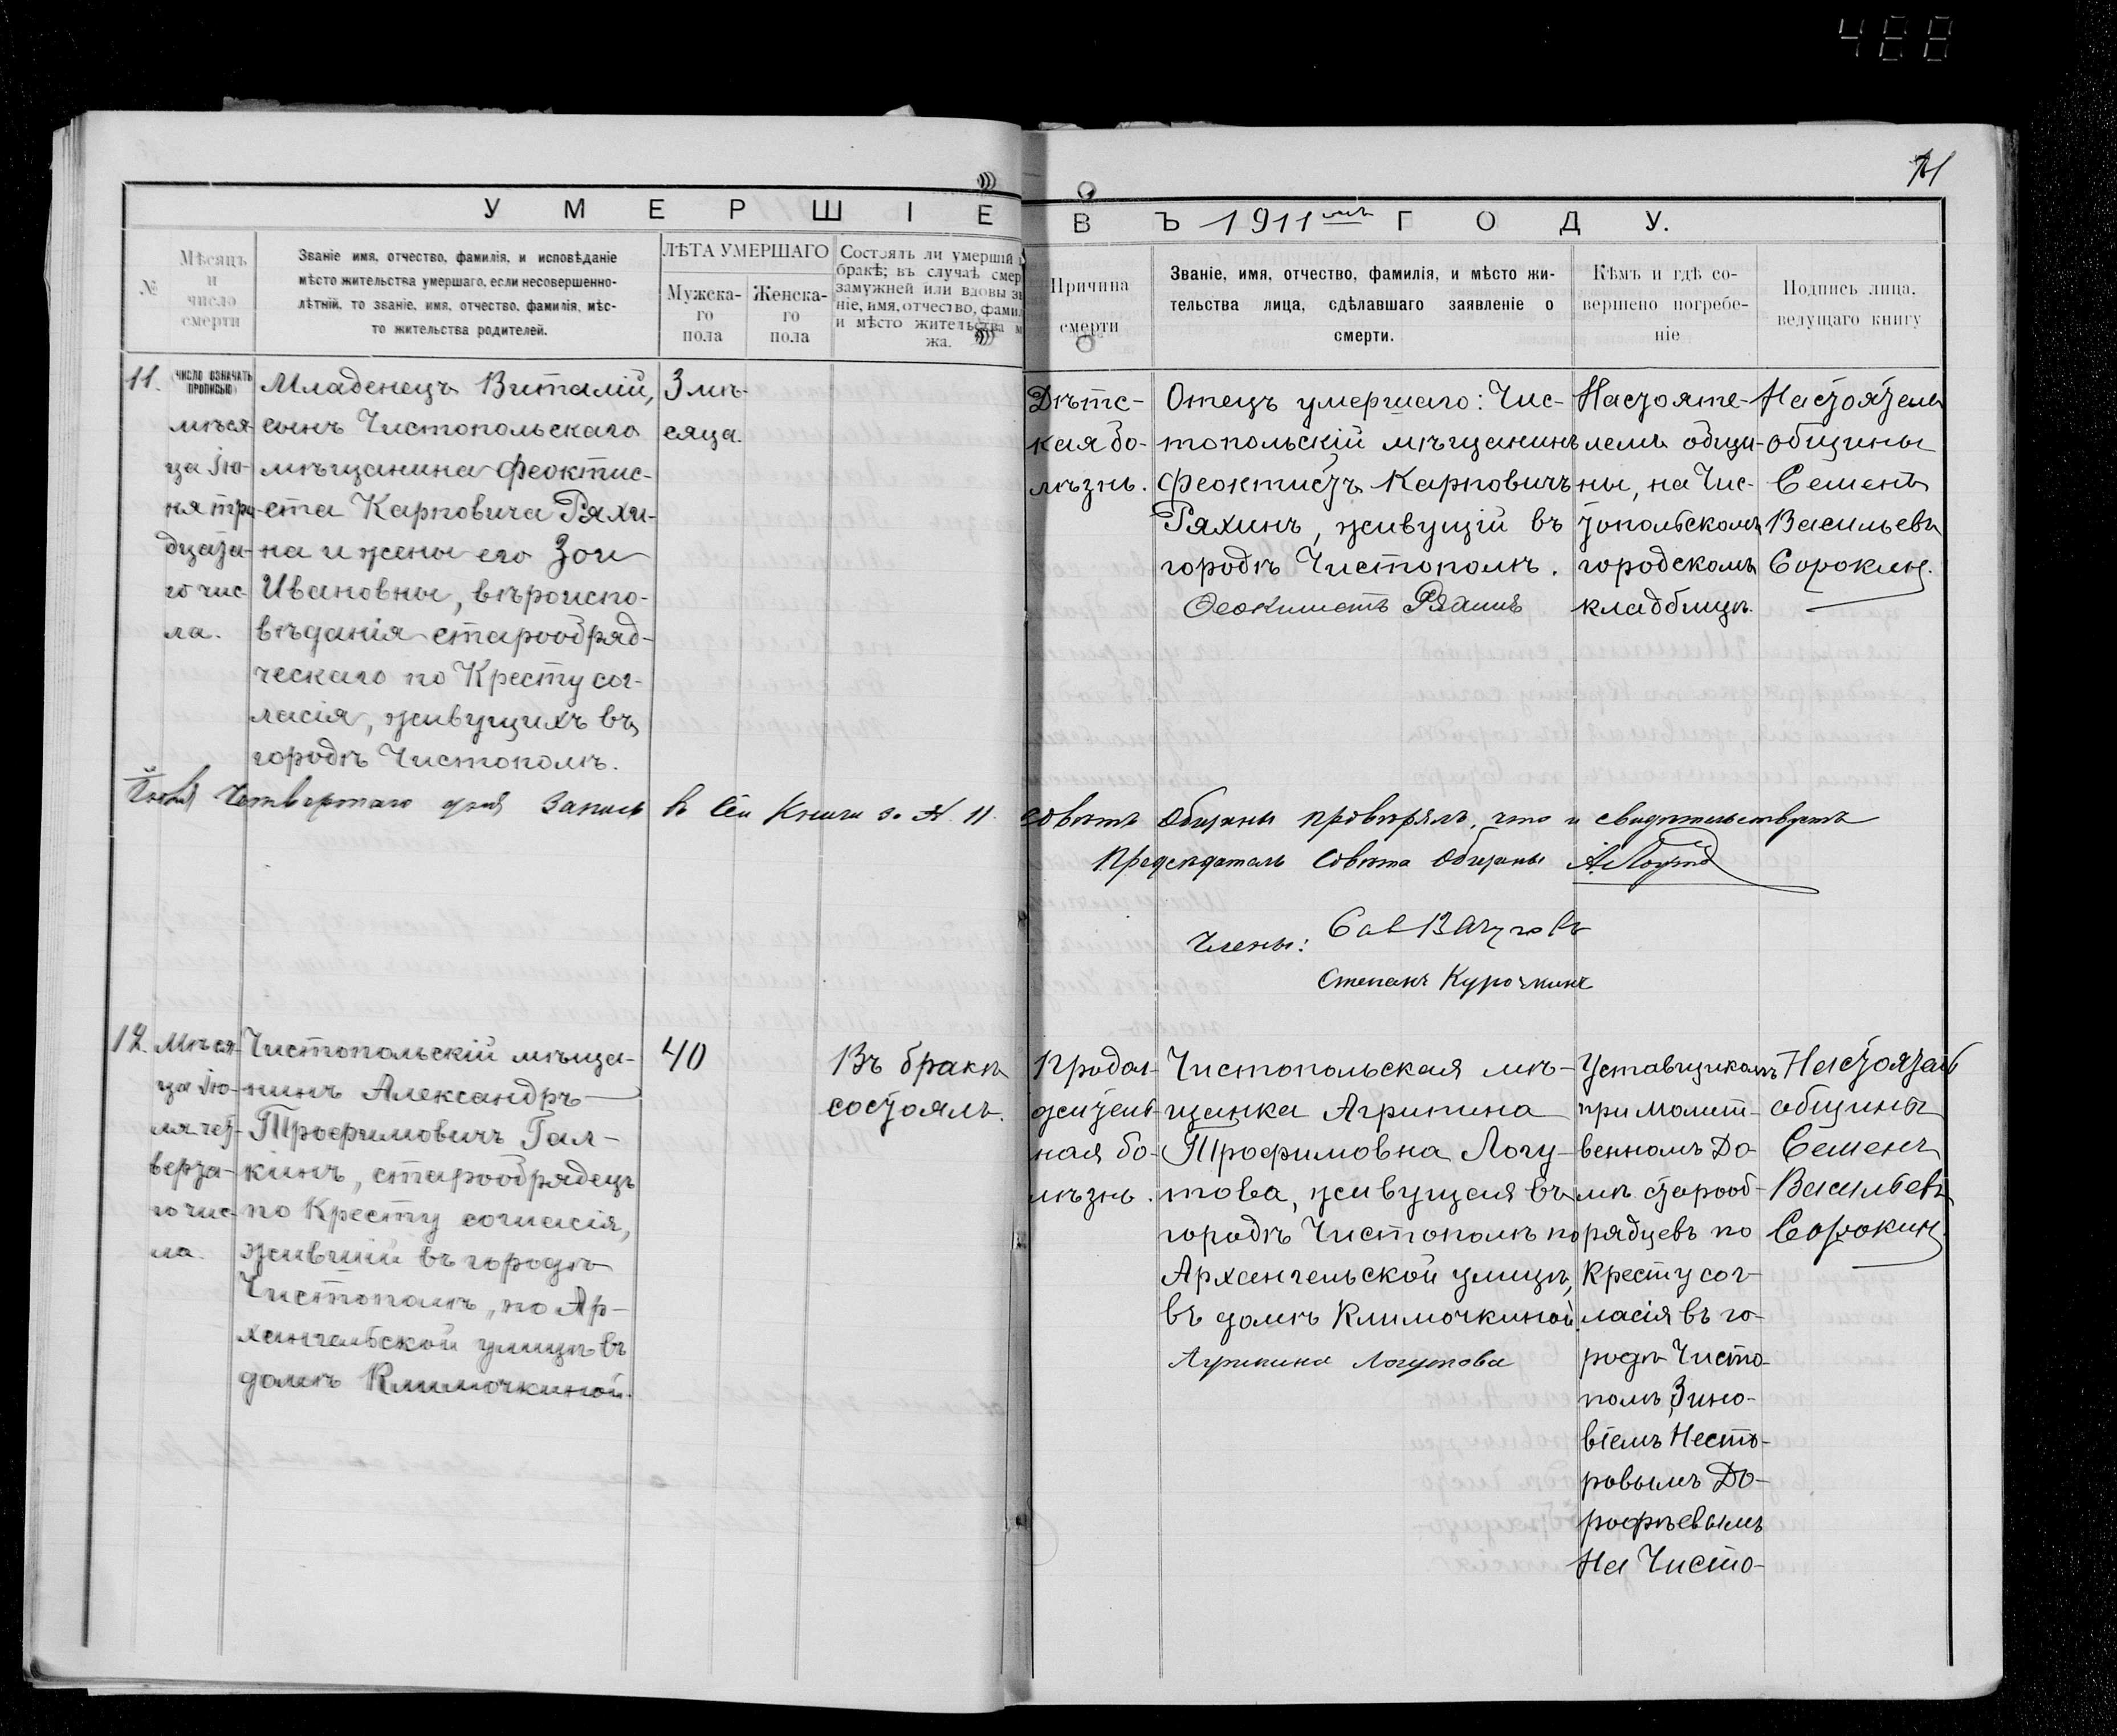 488
71
УМЕРШІЕ ВЪ 1911мъ ГОДУ.
№
Мѣсяцъ
и
число
смерти
Званіе имя, отчество, фамилія, и исповѣданіе
мѣсто жительства умершаго, если несовершенно-
лѣтній, то званіе, имя, отчество, фамилія, мѣс-
то жительства родителей.
ЛѢТА УМЕРШАГО
Мужска-
го
пола
Женска-
го
пола
Состоялъ ли умершій
бракѣ; въ случаѣ смер
замужней или вдовы з
ніе, имя, отчество, фами
и мѣсто жительства м
жа.
Причина
смерти
Званіе, имя, отчество, фамилія, и мѣсто жи-
тельства лица, сдѣлавшаго заявленіе о
смерти.
Кѣмъ и гдѣ со-
вершено погребе-
ніе
Подпись лица,
ведущаго книгу
11.
(ЧИСЛО ОЗНАЧАТЬ
ПРОПИСЬЮ)
мѣся-
ца Iю-
ня три-
дцата-
го чис-
ла.
Младенецъ Виталій,
сынъ Чистопольскаго
мѣщанина Феоктис-
ста Карповича Ряхи-
на и жены его Зои
Ивановны, вѣроиспо-
вѣданія старообряд-
ческаго по Кресту сог-
ласія, живущихъ въ
городѣ Чистополѣ.
3 мѣ-
сяца.
Дѣтс-
кая бо-
лѣзнь.
Отецъ умершаго: Чис-
топольскій мѣщанинъ
Феоктистъ Карповичъ
Ряхинъ, живущій въ
городѣ Чистополѣ.
Феоктистъ Ряхинъ
Настояте-
лемъ общи-
ны, на Чис-
топольскомъ
городскомъ
кладбищѣ.
Настоятель
общины
Семенъ
Васильевъ
Сорокинъ.
Іюля Четвертаго дня запись въ сей Книги за №. 11. Совѣтъ Общины провѣрялъ, что и свидѣтельствуетъ
Предсѣдатель Совѣта Общины
Члены:
Степанъ Курочкинъ
12.
Мѣся-
ца Iю-
ля чет-
верта-
го чис-
ла.
Чистопольскій мѣща-
нинъ Александръ
Трофимовичъ Гал-
кинъ, старообрядецъ
по Кресту согласія,
жившій въ городѣ
Чистополѣ, по Ар-
хангельской улицѣ въ
домѣ Климочкиной.
40
Въ бракѣ
состоялъ.
Продол-
житель-
ная бо-
лѣзнь.
Чистопольская мѣ-
щанка Агрипина
Трофимовна Логу-
това, живущая въ
городѣ Чистополѣ по
Архангельской улицѣ,
въ домѣ Климочкиной.
Агрипина Логутова
Уставщикомъ
при Молит-
венномъ До-
мѣ старооб-
рядцевъ по
Кресту сог-
ласія въ го-
родѣ Чисто-
полѣ Зино-
віемъ Несто-
ровымъ До-
рофѣевымъ
На Чисто-
Настоятель
общины
Семенъ
Васильевъ
Сорокинъ.